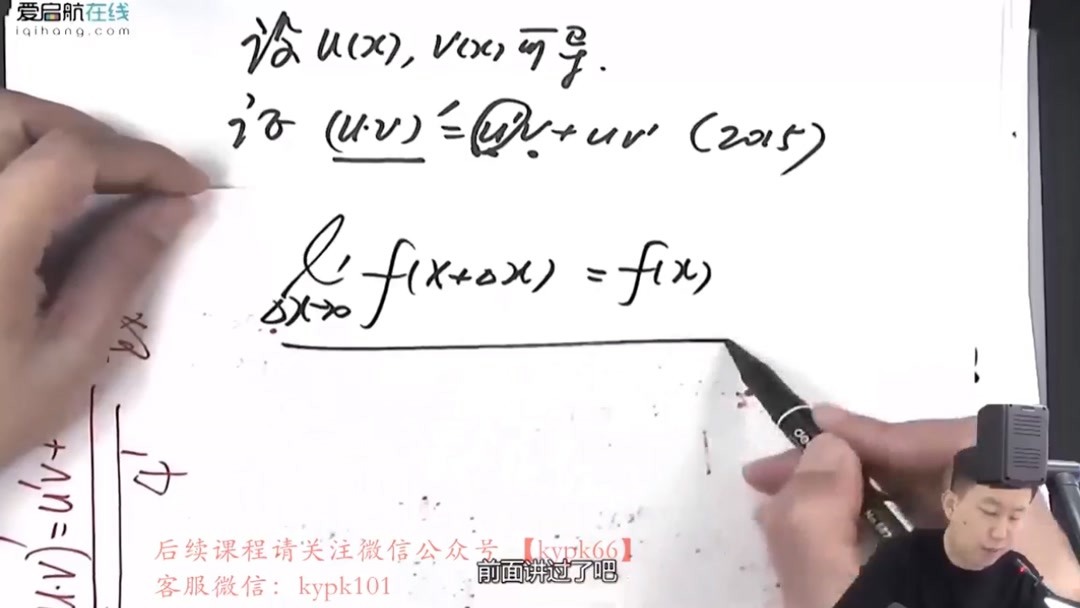 爱启航在线
iqihang.com
设 u(x), v(x) 可导.
证 (u·v)' = u'v + uv' (2015)
lim f(x+Δx) = f(x)
Δx→0
(u·v)' = u'v +
后续课程请关注微信公众号 【kypk66】
客服微信：kypk101
前面讲过了吧